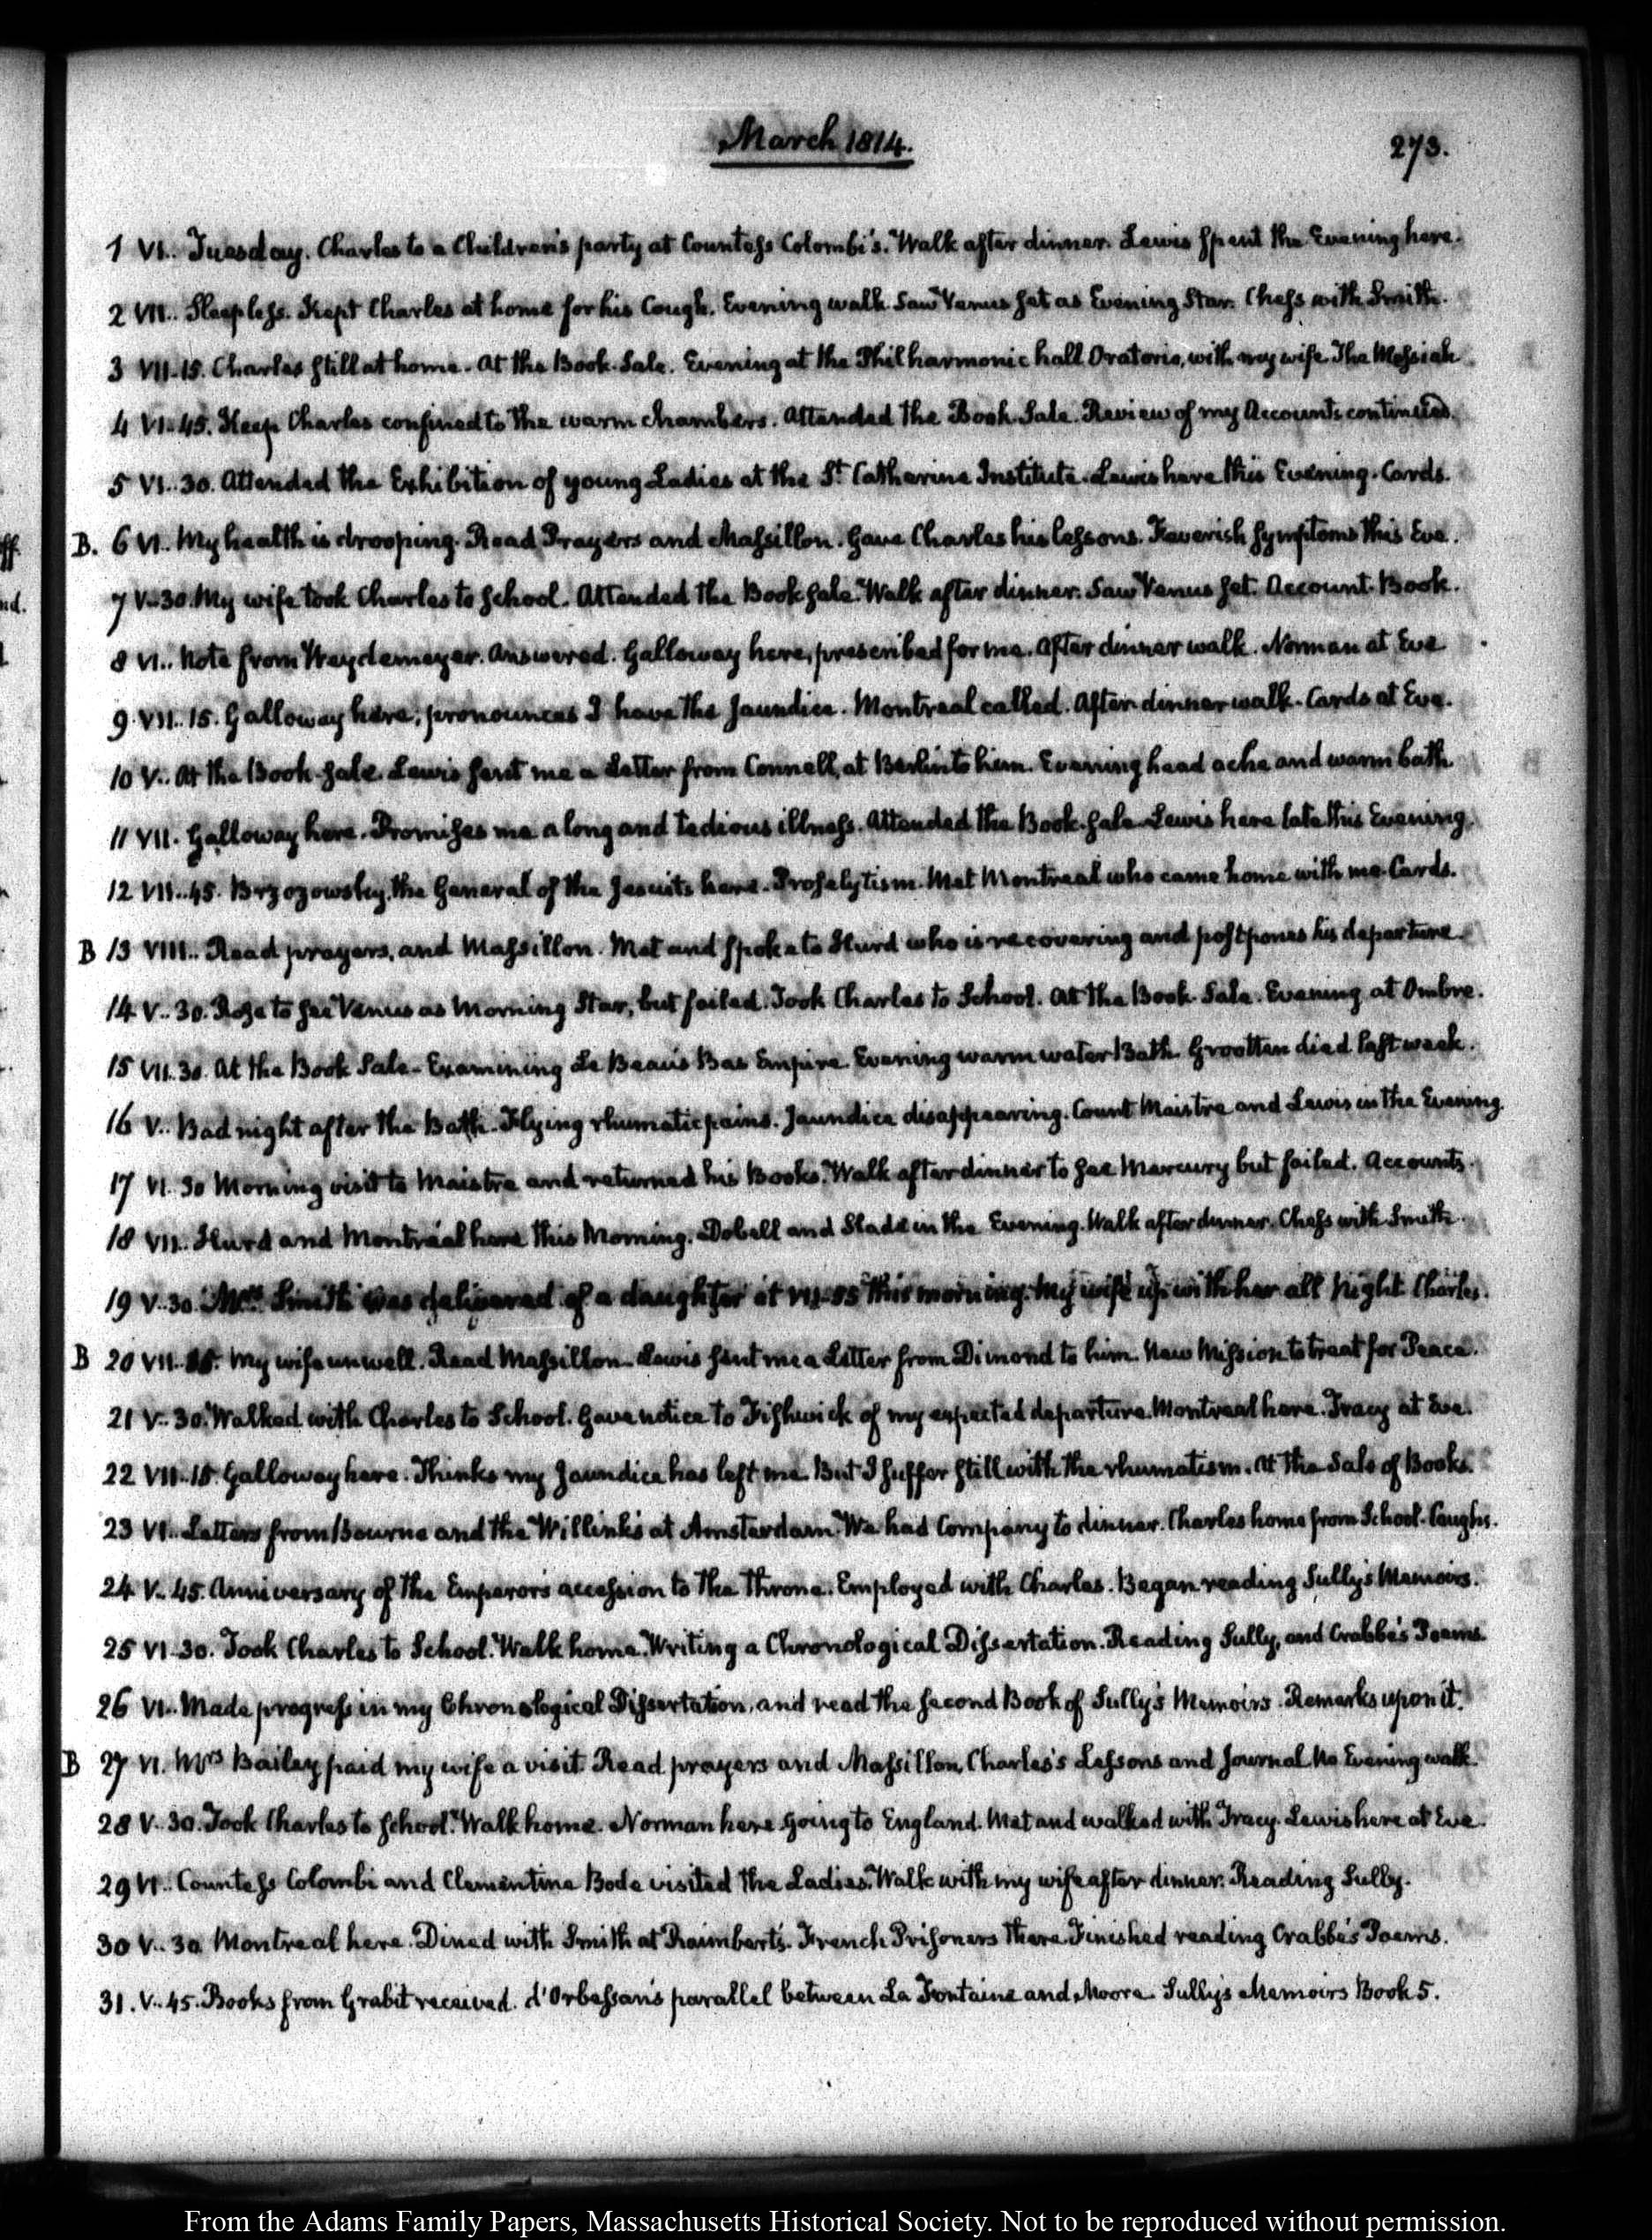 March 1814.
273.
1 VI.. Tuesday. Charles to a Children's party at Countess Colombi's. Walk after dinner. Lewis spent the Evening here.
2 VII.. Sleepless. Kept Charles at home for his Cough. Evening walk. Saw Venus set as Evening Star. Chess with Smith.
3 VII-15. Charles still at home. At the Book-Sale. Evening at the Philharmonic hall Oratorio, with my wife. The Messiah
4 VI-45. Keep Charles confined to the warm chambers. Attended the Book Sale. Review of my Accounts continued.
5 VI..30. Attended the Exhibition of young Ladies at the St. Catherine Institute. Lewis here this Evening. Cards.
B. 6 VI.. My health is drooping. Read Prayers and Massillon. Gave Charles his lessons. Feverish symptoms this Eve.
7 V-30. My wife took Charles to School. Attended the Book sale. Walk after dinner. Saw Venus set. Account-Book.
8 VI.. Note from Weydemeyer. Answered. Galloway here, prescribed for me. After dinner walk. Norman at Eve
9 VII..15. Galloway here; pronounces I have the Jaundice. Montreal called. After dinner walk. Cards at Eve.
10 V.. At the Book-sale. Lewis sent me a Letter from Connell, at Berlin to him. Evening head ache and warm bath
11 VII. Galloway here. Promises me a long and tedious illness. Attended the Book-sale. Lewis here late this Evening.
12 VII..45. Brzozowsky, the General of the Jesuits here. Proselytism. Met Montreal who came home with me. Cards.
B 13 VIII.. Read prayers, and Massillon. Met and spoke to Hurd who is recovering and postpones his departure.
14 V..30. Rose to see Venus as Morning Star, but failed. Took Charles to School. At the Book-Sale. Evening at Ombre.
15 VII.30. At the Book Sale. Examining Le Beau's Bas Empire. Evening warm water Bath. Grootten died last week.
16 V.. Bad night after the Bath. Flying rhumatic pains. Jaundice disappearing. Count Maistre and Lewis in the Evening.
17 VI.30 Morning visit to Maistre and returned his Books. Walk after dinner to see Mercury but failed. Accounts.
18 VII.. Hurd and Montreal here this Morning. Dobell and Slade in the Evening. Walk after dinner. Chess with Smith.
19 V-30. Mrs. Smith was delivered of a daughter at VII-55 this morning. My wife up with her all Night. Charles.
B 20 VII.. My wife unwell. Read Massillon. Lewis sent me a Letter from Dimond to him. New Mission to treat for Peace.
21 V-30. Walked with Charles to School. Gave notice to Fishwick of my expected departure. Montreal here. Tracy at Eve.
22 VII-15. Galloway here. Thinks my Jaundice has left me. But I suffer still with the rhumatism. At the Sale of Books.
23 VI.. Letters from Bourne and the Willinks at Amsterdam. We had Company to dinner. Charles home from School. Coughs.
24 V..45. Anniversary of the Emperor's accession to the throne. Employed with Charles. Began reading Sully's Memoirs.
25 VI-30. Took Charles to School. Walk home. Writing a Chronological Dissertation. Reading Sully, and Crabbe's Poems.
26 VI.. Made progress in my Chronological Dissertation, and read the second Book of Sully's Memoirs. Remarks upon it.
B 27 VI. Mrs Bailey paid my wife a visit. Read prayers and Massillon, Charles's Lessons and Journal. No Evening walk.
28 V..30. Took Charles to School. Walk home. Norman here going to England. Met and walked with Tracy. Lewis here at Eve.
29 VI.. Countess Colombi and Clementina Bode visited the Ladies. Walk with my wife after dinner. Reading Sully.
30 V..30 Montreal here. Dined with Smith at Raimbert's. French Prisoners there. Finished reading Crabbe's Poems.
31. V..45. Books from Grabit received. d'Orbessan's parallel between La Fontaine and Moore. Sully's Memoirs Book 5.
From the Adams Family Papers, Massachusetts Historical Society. Not to be reproduced without permission.